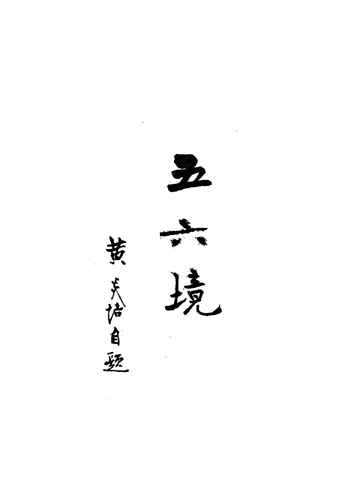 五六境
黄炎培自题